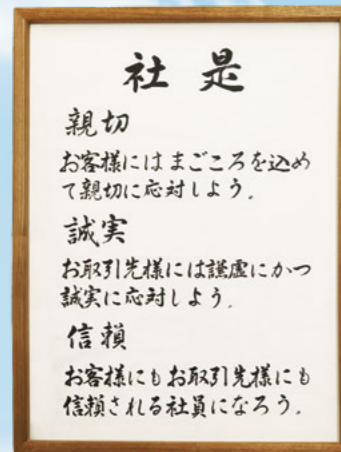 社是
親切
お客様にはまごころを込め
て親切に応対しよう。
誠実
お取引先様には謙虚にかつ
誠実に応対しよう。
信頼
お客様にもお取引先様にも
信頼される社員になろう。